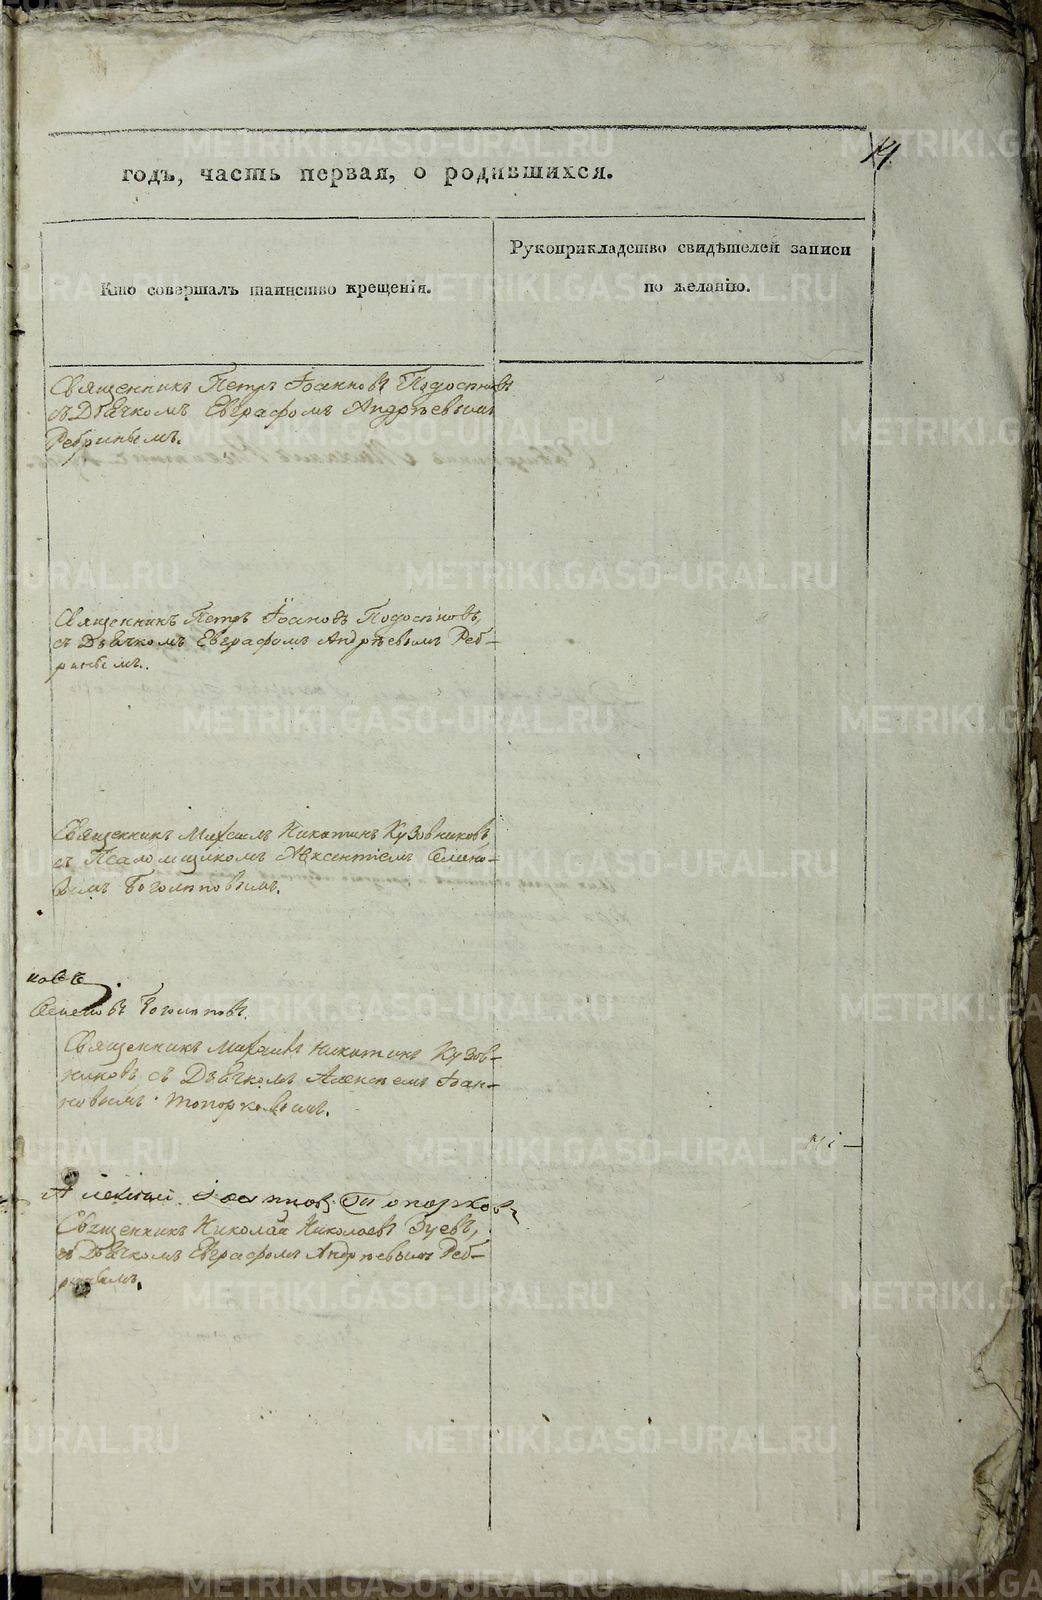 14.
годъ, часть первая, о родившихся.
Кто совершалъ таинство крещенія.
Рукоприкладство свидѣтелей записи
по желанію.
Священникъ Петръ Іоанновъ Подосеновъ
съ Дьячкомъ Евграфомъ Андреевымъ
Ребринымъ.
Священникъ Петръ Іоановъ Подосеновъ,
съ Дьячкомъ Евграфомъ Андреевымъ Реб-
ринымъ.
Священникъ Михаилъ Никитинъ Кузовниковъ,
съ Псаломщикомъ Авксентіемъ Семено-
вымъ Боголеповымъ.
ковъ
Семеновъ Боголеповъ.
Священникъ Михаилъ Никитинъ Кузов-
никовъ, съ Дьячкомъ Алексеемъ Іоан-
новымъ Топорковымъ.
Алексей Іоанновъ Топорков
Священникъ Николай Николаевъ Зуевъ,
съ Дьячкомъ Евграфомъ Андреевымъ Реб-
ринымъ.
METRIKI.GASO-URAL.RU